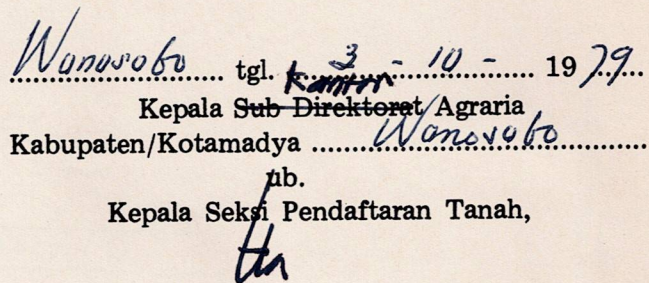 Wonosobo tgl. 3 - 10 - 1979
Kantor
Kepala Sub Direktorat Agraria
Kabupaten/Kotamadya Wonosobo
ub.
Kepala Seksi Pendaftaran Tanah,